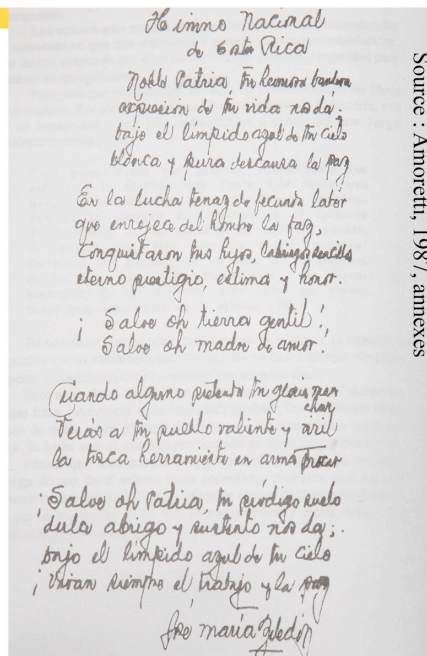 Himno Nacional
de Costa Rica
Noble Patria, tu hermosa bandera
expresión de tu vida nos da:
bajo el límpido azul de tu cielo
blanca y pura descansa la paz
En la lucha tenaz de fecunda labor
que enrojece del hombre la faz,
Conquistaron tus hijos, labriegos sencillos
eterno prestigio, estima y honor.
¡Salve oh tierra gentil!,
Salve oh madre de amor!
Cuando alguno pretenda tu gloria man
char
Verás a tu pueblo valiente y viril
la tosca herramienta en arma trocar
¡Salve oh Patria, tu pródigo suelo
dulce abrigo y sustento nos da;
bajo el límpido azul de tu cielo
¡Vivan siempre el trabajo y la paz
José María Zeledón
Source : Amoretti, 1987, annexes